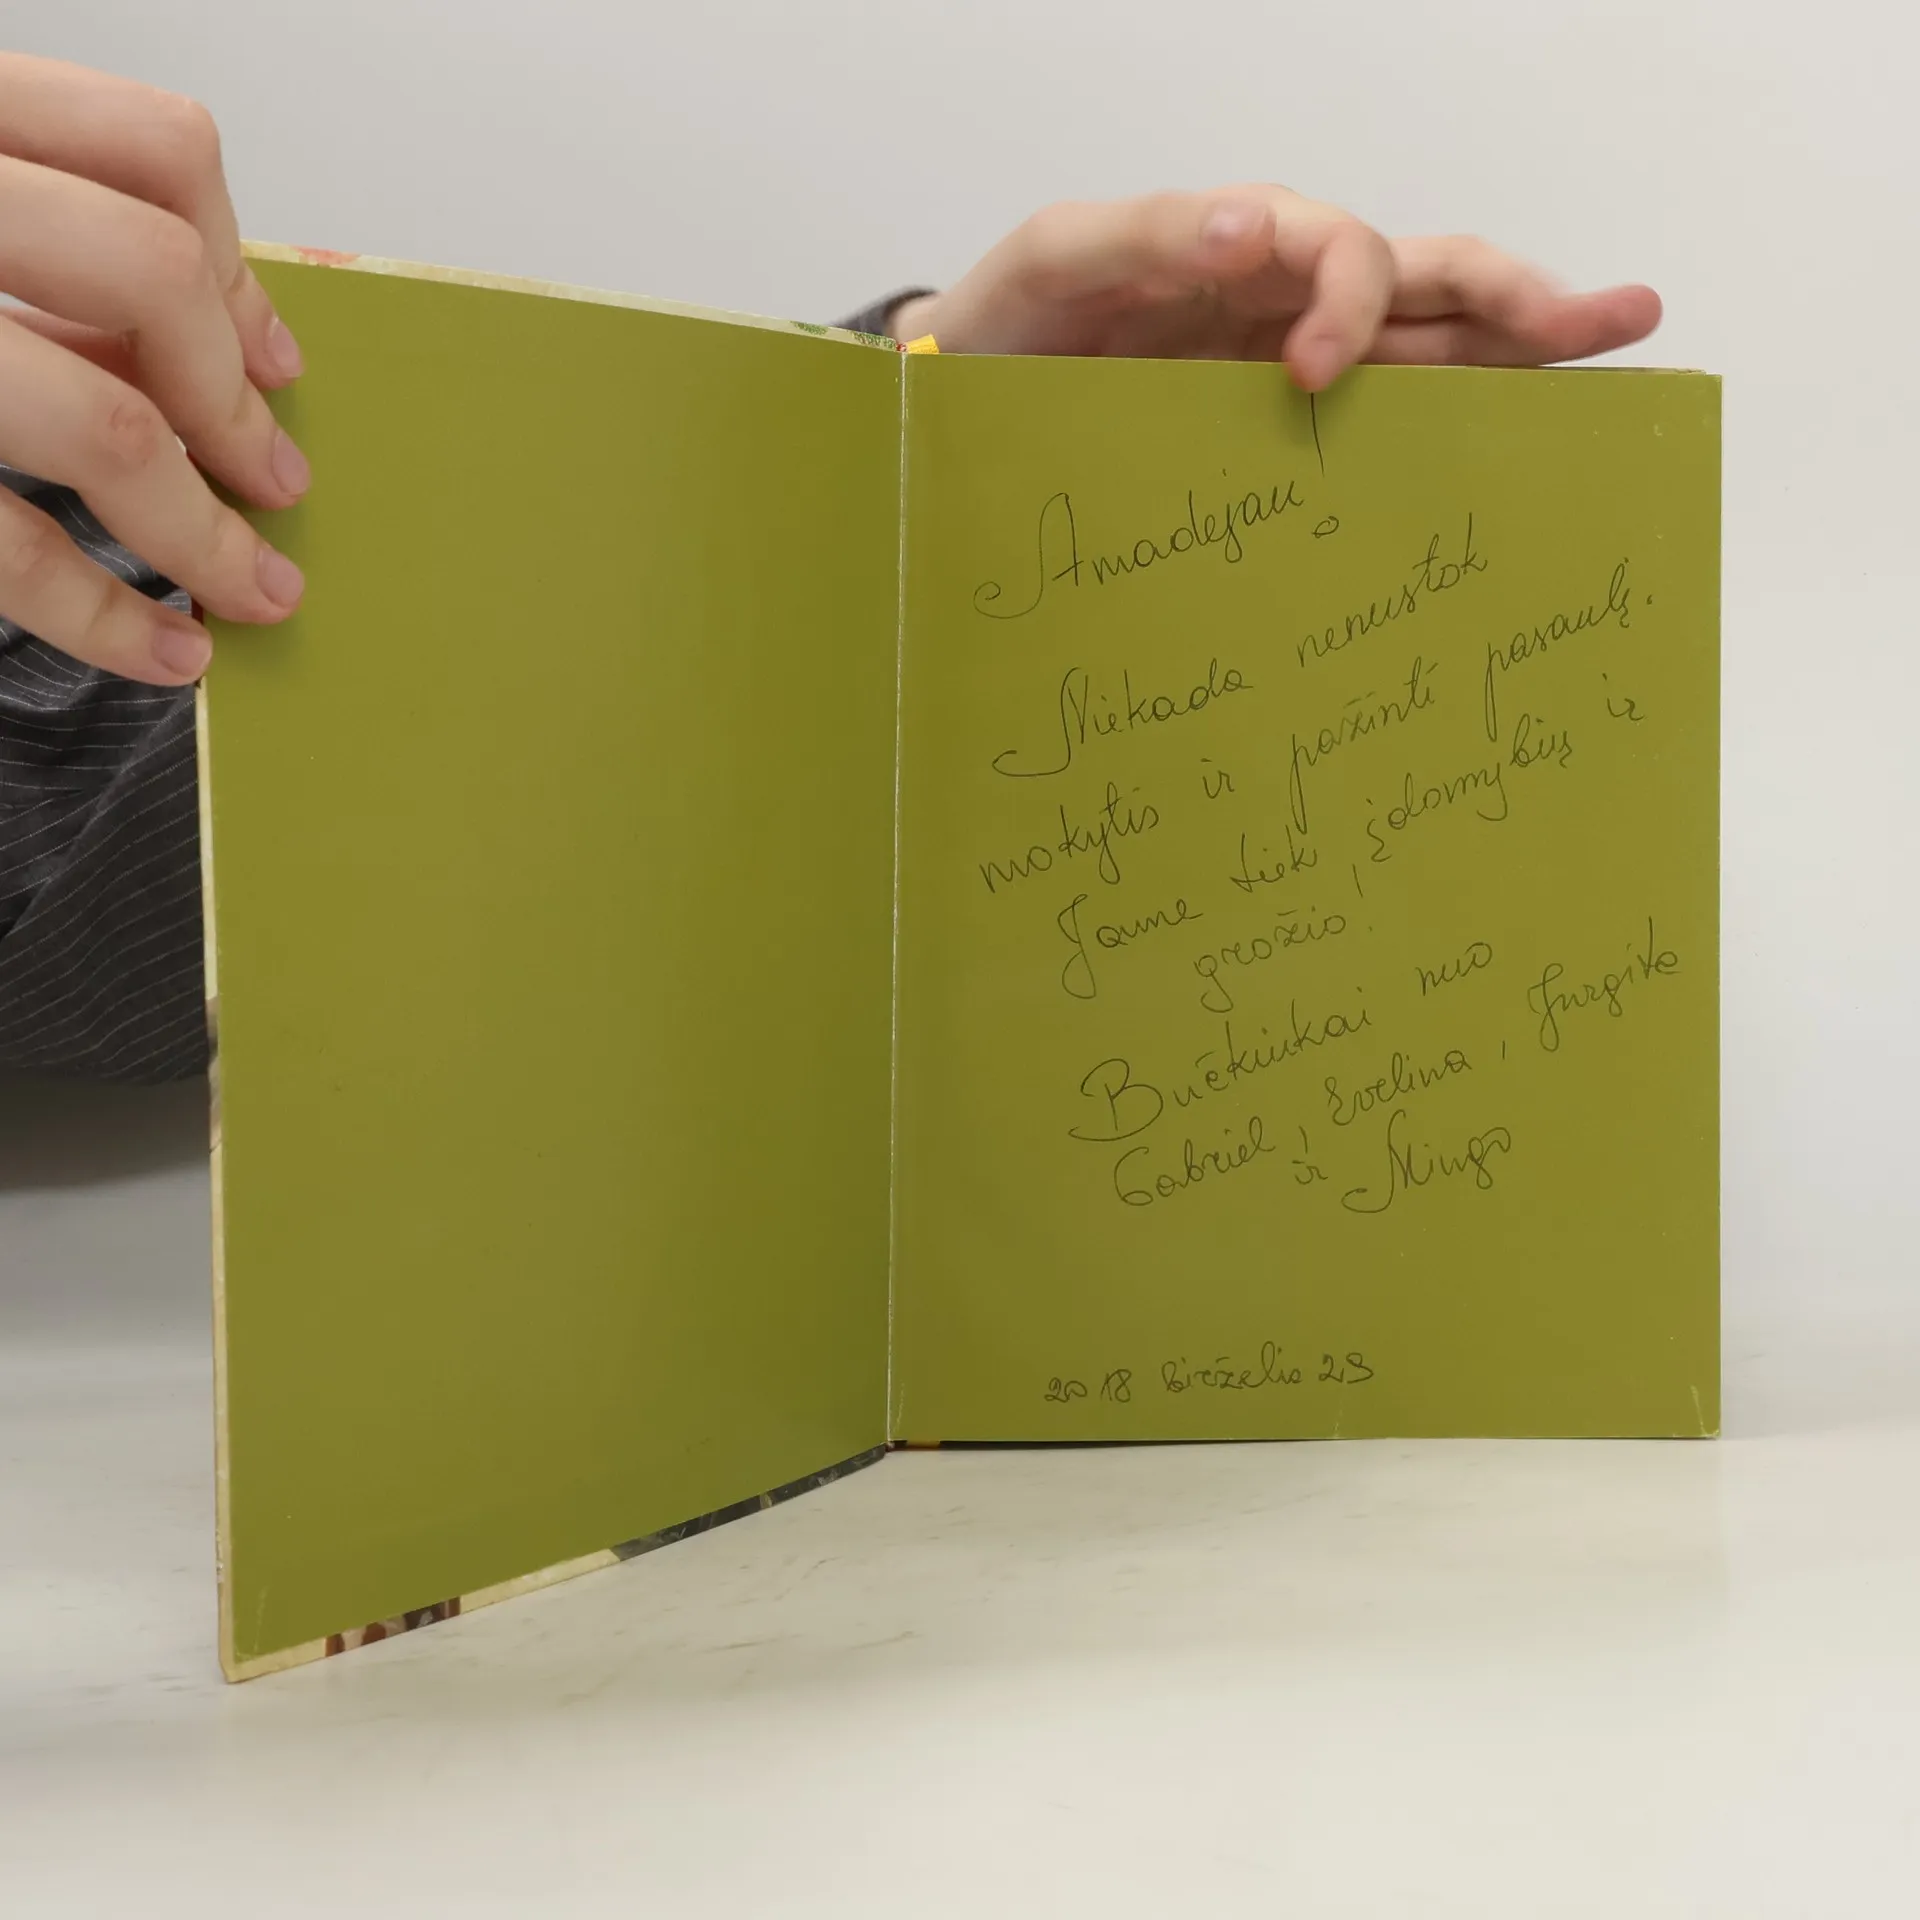 Amadejau!
Niekada nenustok
mokytis ir pažinti pasaulį.
Jame tiek įdomybių ir
grožio!
Bučkiukai nuo
Gabriel, Evelina, Jurgita
ir Mingo
2018 Birželio 29